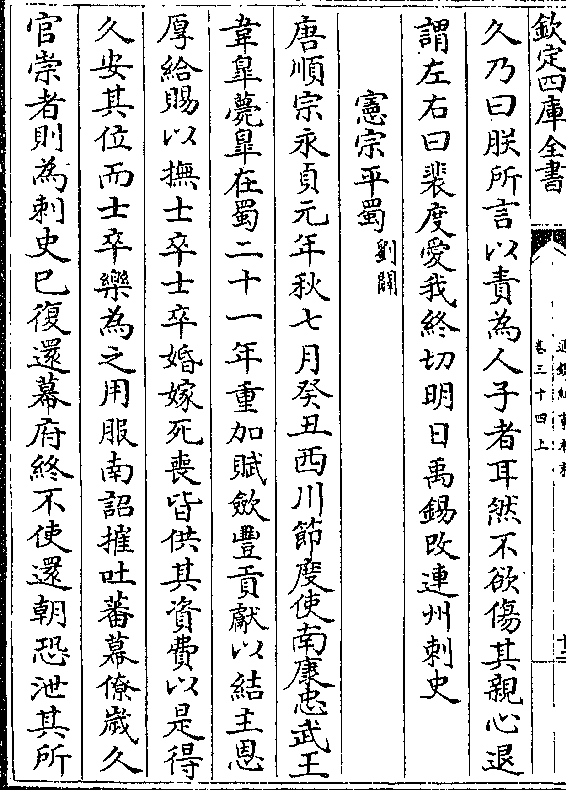 欽定四庫全書
卷三十四上
久乃曰朕所言以責為人子者耳然不欲傷其親心退
謂左右曰裴度愛我終切明日禹錫改連州刺史
憲宗平蜀劉闢
唐順宗永貞元年秋七月癸丑西川節度使南康忠武王
韋皐薨皐在蜀二十一年重加賦歛豐貢獻以結主恩
厚給賜以撫士卒士卒婚嫁死喪皆供其資費以是得
久安其位而士卒樂為之用服南詔摧吐蕃幕僚歲久
官崇者則為刺史已復還幕府終不使還朝恐泄其所